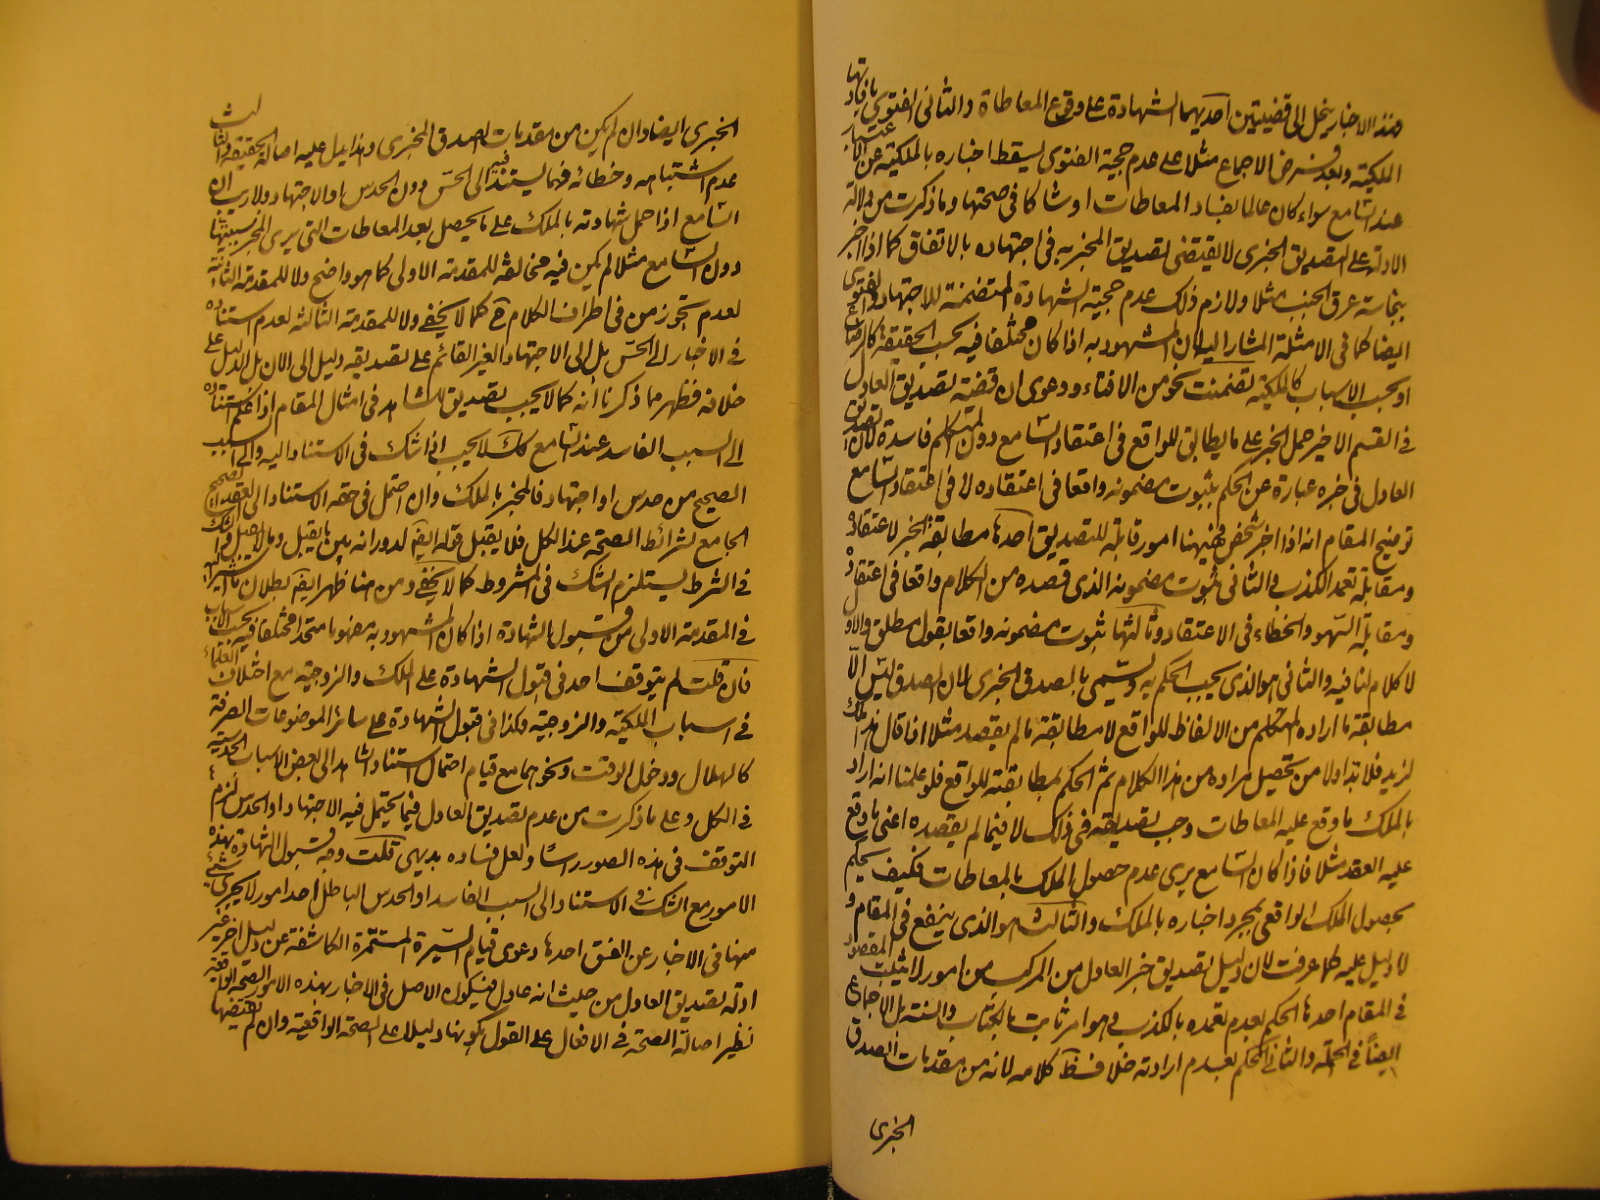 وهذا الاخبار ينحل الى قضيتين احديهما الشهادة على وقوع المعاطاة والثانى الفتوى بافادتها
الملكية وبعد فرض الاجماع مثلا على عدم حجية الفتوى يسقط اخباره بالملكية عن الاعتبار
عند السامع سواء كان عالما بفساد المعاطات او شاكا فى صحتها وما ذكرت من دلالة
الادلة على التصديق الخبرى لا يقتضى تصديق المخبر به فى اجتهاده بالاتفاق كما اذا اخبر
بنجاسة عرق الجنب مثلا ولازم ذلك عدم حجية الشهادة المتضمنة للاجتهاد والفتوى
ايضا كما فى الامثلة المشار اليها لان المشهود به اذا كان مختلفا فيه بحسب الحقيقة كالرضاع
او بحسب الاسباب كالملكية تضمنت نحو من الافتاء ودعوى ان قضية تصديق العادل
فى القسم الاخير حمل الخبر على ما يطابق للواقع فى اعتقاد السامع دون المتكلم فاسدة لان تصديق
العادل فى خبره عبارة عن الحكم بثبوت مضمونه واقعا فى اعتقاده لا فى اعتقاد السامع
توضيح المقام انه اذا اخبر شخص فهيهنا امور قابلة للتصديق احدها مطابقة الخبر لاعتقاده
ومقابلة تعمد الكذب والثانى ثبوت مضمونه الذى قصده من الكلام واقعا فى اعتقاده
ومقابله السهو والخطاء فى الاعتقاد وثالثها ثبوت مضمونه واقعا بقول مطلق والاول
لا كلام لنا فيه والثانى هو الذى يجب الحكم به ويسمى بالصدق الخبرى لان الصدق ليس الا
مطابقة ما اراده المتكلم من الالفاظ للواقع لا مطابقة ما لم يقصد مثلا اذا قال هذا ملك
لزيد فلا بد اولا من تحصيل مراده من هذا الكلام ثم الحكم بمطابقته للواقع فلو علمنا انه اراد
بالملك ما وقع عليه المعاطات وجب تصديقه فى ذلك لا فيما لم يقصده اعنى ما وقع
عليه العقد مثلا فاذا كان السامع يرى عدم حصول الملك بالمعاطات فكيف يحكم
بحصول الملك الواقعى بمجرد اخباره بالملك والثالث هو الذى ينفع فى المقام و
لا دليل عليه كما عرفت لان دليل تصديق خبر العادل من المركب من امور لا يثبت المقصود
فى المقام احدها الحكم بعدم تعمده بالكذب وهو امر ثابت بالكتاب والسنة بل الاجماع
ايضا فى الجملة والثانى الحكم بعدم ارادته خلاف ظ كلامه لانه من مقدمات الصدق
الخبرى
الخبرى ايضا وان لم يكن من مقدمات لصدق المخبرى وهذا يدل عليه اصالة الحقيقة والثالث
عدم اشتباهه وخطائه فيما يستند فيه الى الحس دون الحدس او الاجتهاد ولا ريب ان
السامع اذا حمل شهادته بالملك على ما يحصل بعد المعاطات التى يرى المخبر سببيتها
دون السامع مثلا لم يكن فيه مخالفة للمقدمة الاولى كما هو واضح ولا للمقدمة الثانية
لعدم تجوز من فى اطراف الكلام ح كما لا يخفى ولا للمقدمة الثالثة لعدم استناده
فى الاخبار الى الحس بل الى الاجتهاد الغير القائم على تصديقه دليل الى الان بل الدليل على
خلافه فظهر مما ذكرنا انه كما لا يجب تصديق الشاهد فى امثال المقام اذا علم استناده
الى السبب الفاسد عند السامع كك لا يجب اذا شك فى الاستناد اليه والى السبب
الصحيح من حدس او اجتهاد فالمخبر بالملك وان احتمل فى حقه الاستناد الى العقد الصحيح
الجامع لشرائط الصحة عند الكل فلا يقبل قوله ايضا لدورانه بين ما يقبل وما لا يقبل والشك
فى الشرط يستلزم الشك فى المشروط كما لا يخفى ومن هنا ظهر ايضا بطلان ما اشير اليه
فى المقدمة الاولى من قبول الشهادة اذا كان المشهود به مفهوما متحدا مختلفا فيه بحسب الاسباب
فان قلت لم يتوقف احد فى قبول الشهادة على الملك والزوجية مع اختلاف العلماء
فى اسباب الملكية والزوجية وكذا فى قبول الشهادة على سائر الموضوعات الصرفة
كالهلال ودخول الوقت ونحوهما مع قيام احتمال استناد الشاهد الى بعض الاسباب الحدسية
فى الكل وعلى ما ذكرت من عدم تصديق العادل فيما يحتمل فيه الاجتهاد او الحدس لزم
التوقف فى هذه الصور راسا ولعل فساده بديهى قلت وجه قبول الشهادة بهذه
الامور مع الشك فى الاستناد الى السبب الفاسد او الحدس الباطل احد امور لا يجرى شئ
منها فى الاخبار عن الفسق احدها دعوى قيام السيرة المستمرة الكاشفة عن دليل اخر غير
ادلة تصديق العادل من حيث انه عادل فيكون الاصل فى الاخبار بهذه الامور الصحة الواقعية
نظير اصالة الصحة فى الافعال على القول بكونها دليلا على الصحة الواقعية وان لم يقتضيها